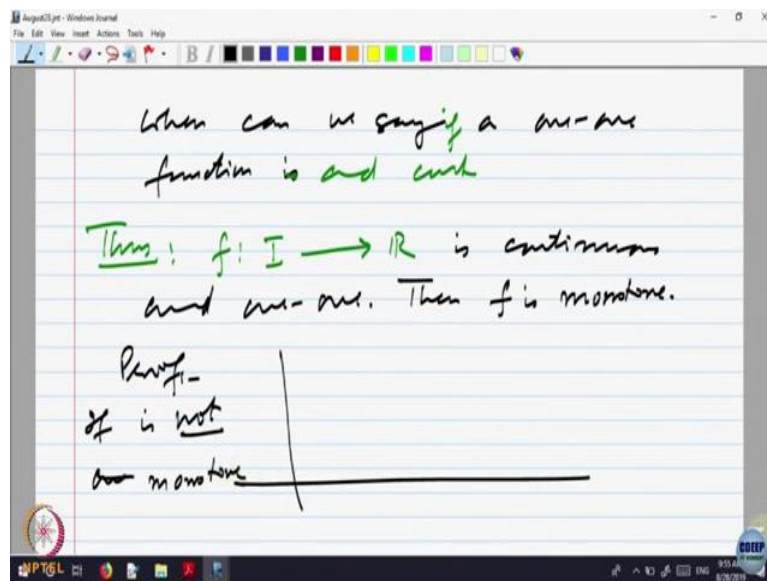 August28.jnt - Windows Journal
File Edit View Insert Actions Tools Help
B I
when can we say if a one-one
function is and cont
Thm: f: I → IR is continuous
and one-one. Then f is monotone.
Proof:-
If is not
monotone
NPTEL
CDEEP
ENG
8/28/2019